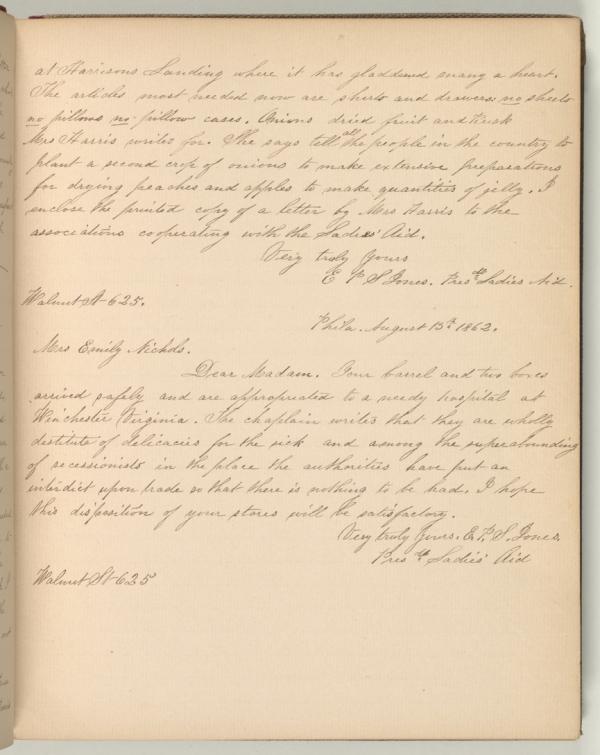 at Harrisons Landing where it has gladdened many a heart.
The articles most needed now are shirts and drawers; no sheets
no pillows no pillow cases. Onions dried fruit and Rusk
Mrs Harris writes for. She says tell all the people in the country to
plant a second crop of onions to make extensive preparations
for drying peaches and apples to make quantities of jelly. I
enclose the printed copy of a letter by Mrs Harris to the
associations cooperating with the Ladies Aid.
Very truly Yours
E P S Jones. Pres Ladies Aid.
Walnut St 625.
Phila. August 15th 1862.
Mrs Emily Nichols.
Dear Madam. Your barrel and two boxes
arrived safely and are appropriated to a needy hospital at
Winchester Virginia. The chaplain writes that they are wholly
destitute of delicacies for the sick and among the
of secessionists in the place the authorities have put an
interdict upon trade so that there is nothing to be had. I hope
this disposition of your stores will be satisfactory.
Very truly Yours. E. P. S. Jones.
Pres Ladies' Aid
Walnut St 625